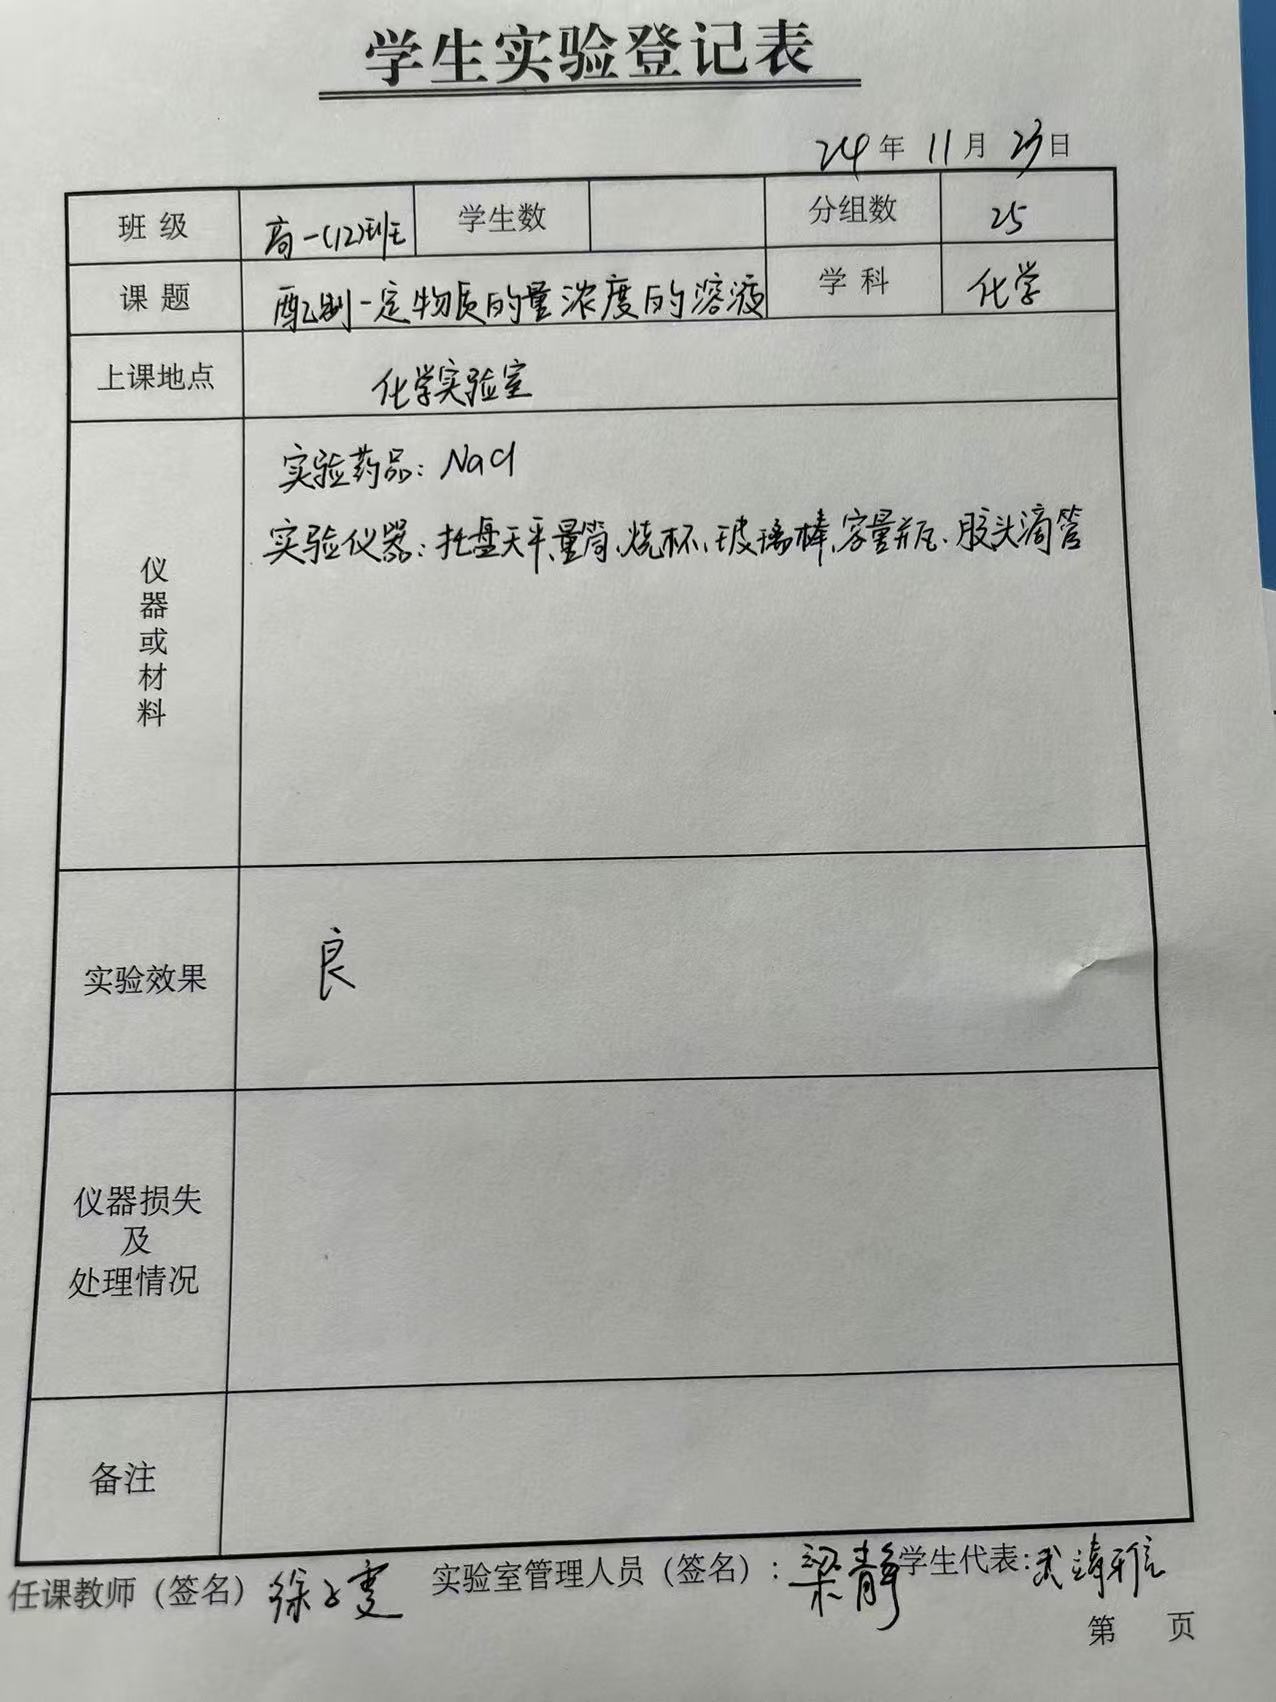 学生实验登记表
24年 11月 23日
班级 高一(12)班 学生数 分组数 25
课题 配制一定物质的量浓度的溶液 学科 化学
上课地点 化学实验室
仪器或材料
实验药品：NaCl
实验仪器：托盘天平、量筒、烧杯、玻璃棒、容量瓶、胶头滴管
实验效果 良
仪器损失
及
处理情况
备注
任课教师（签名） 徐 实验室管理人员（签名）：梁静 学生代表：
第 页